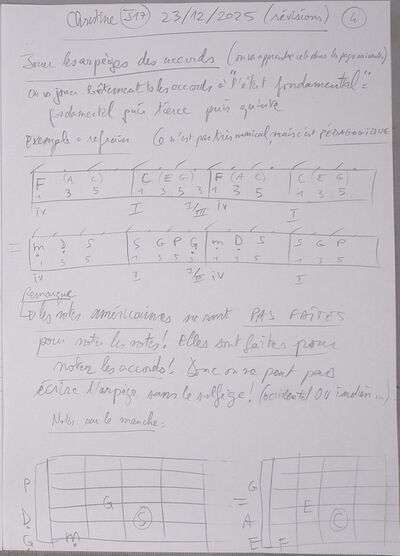 Christine J17 23/12/2025 (révisions) 4
Jouer les arpèges des accords (on va apprendre cela dans les pages suivantes)
On va jouer bêtement ts les accords à "l'état fondamental" =
fondamental puis tierce puis quinte
Exemple = refrain G n'est pas très musical, mais c'est PÉDAGOGIQUE
F (A C) C (E G) F (A C) C (E G)
1 3 5 1 3 5 3 1 3 5 1 3 5
iv I I/III iv I
= m D S S G P G m D S S G P
1 3 5 1 3 5 3 1 3 5 1 3 5
iv I I/III iv I
Remarque
les notes américaines ne sont PAS FAITES
pour noter les notes! Elles sont faites pour
noter les accords! Donc on ne peut pas
écrire l'arpège sans le solfège! (occidental OU indien ...)
Notes sur le manche =
P G
G S = E C
D A
G m E F